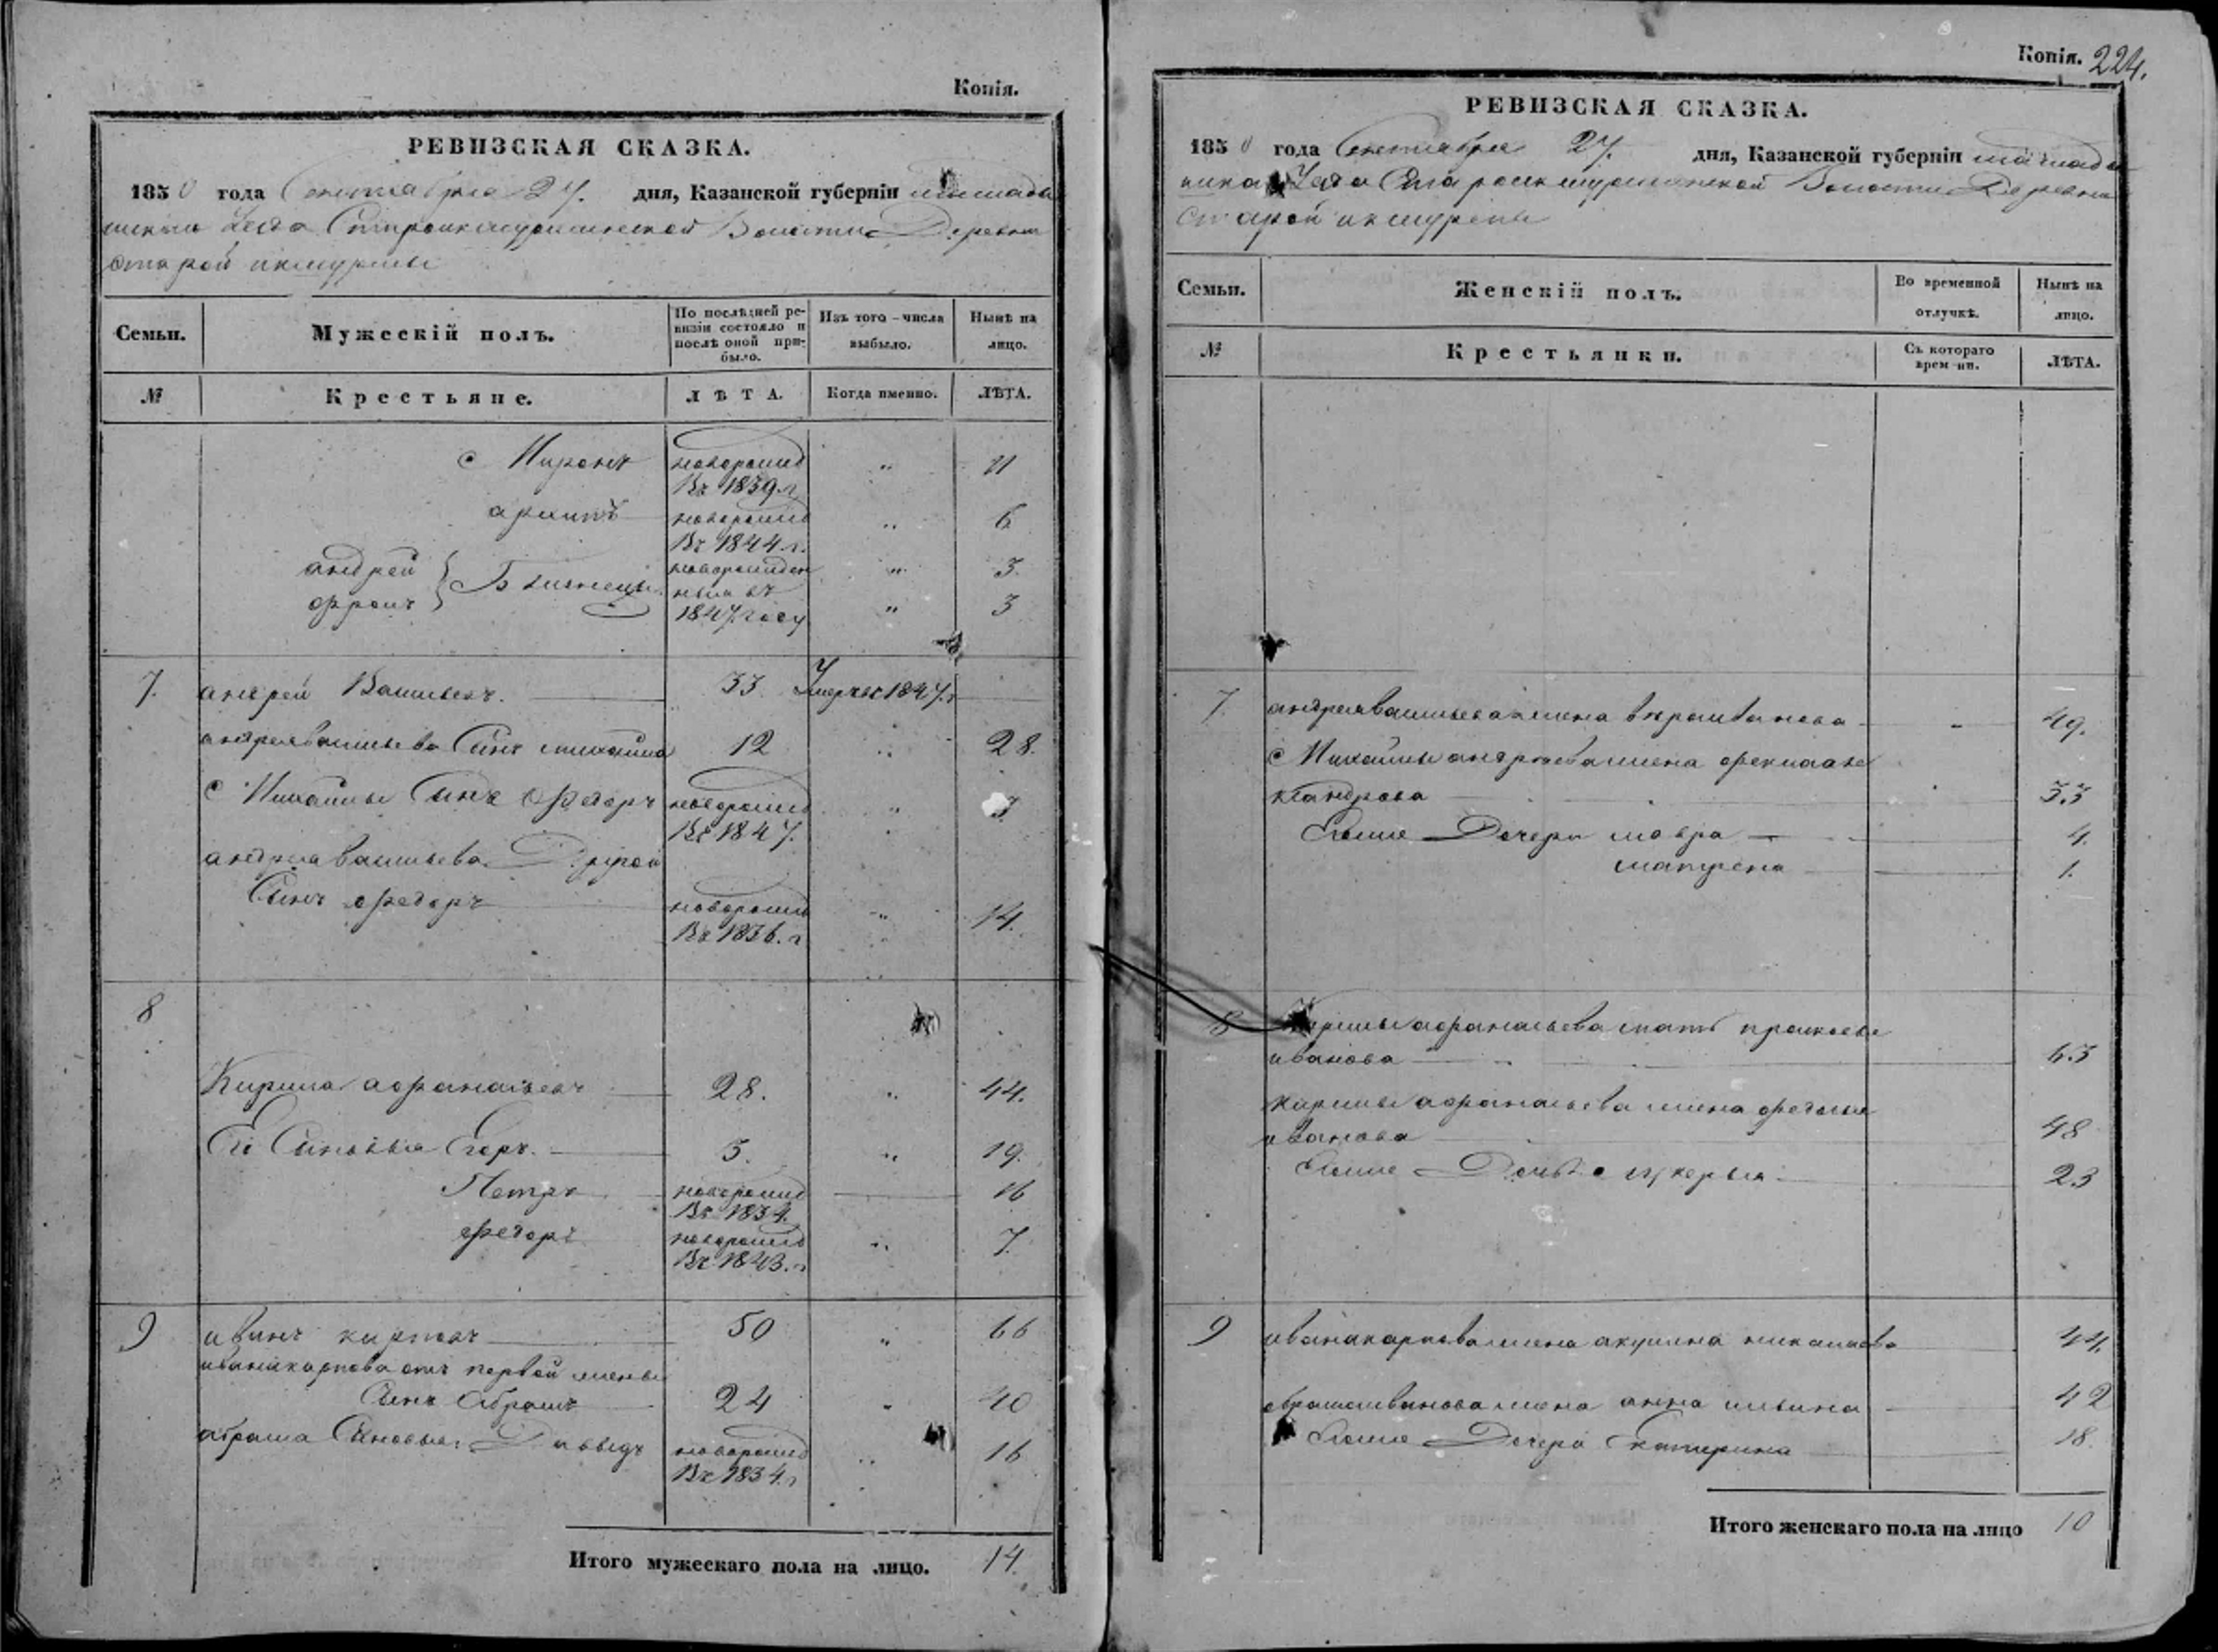 Копія.
РЕВИЗСКАЯ СКАЗКА.
1850 года Сентября 27. дня, Казанской губерніи
уезда Волости Деревни
Старой икшурмы
Семьи.
Мужескій полъ.
По послѣдней ре-
визіи состояло и
послѣ оной при-
было.
Изъ того-числа
выбыло.
Нынѣ на
лицо.
№
Крестьяне.
ЛѢТА.
Когда именно.
ЛѢТА.
Миронъ новорожд „ 11
Въ 1839 г
новорожд „ 6
Въ 1844 г.
андрей новорожден „ 3.
Близнецы ныя въ
фролъ 1847 году „ 3
7. андрей Васильевъ. 33. Умеръ въ 1847. г
андрея васильева Сынъ михайла 12 „ 28.
Михайлы Сынъ Федоръ новорожд „ 3
Въ 1847.
андрея васильева Другой
Сынъ Федоръ новорожд „ 14.
Въ 1836. г
8
Кирила афанасьевъ 28. „ 44.
Его Сыновья Егоръ. 3. „ 19.
Петръ новорожд 16
Въ 1834.
Федоръ новорожд „ 7.
Въ 1843. г
9 иванъ карповъ 50 „ 66
ивана карпова отъ первой жены
Сынъ Абрамъ 24 „ 40
абрама Сыновья: Давыдъ новорожд „ 16
Въ 1834. г
Итого мужескаго пола на лицо. 14.
Копія. 224.
РЕВИЗСКАЯ СКАЗКА.
1850 года Сентября 27. дня, Казанской губерніи
Уезда Волости Деревни
Старой икшурмы
Семьи.
Женскій полъ.
Во временной
отлучкѣ.
Нынѣ на
лицо.
№
Крестьянки.
Съ котораго
времени.
ЛѢТА.
7. андрея васильева жена иванова - 49.
Михайлы андреева жена фекла але
ксандрова 33
Ихъ Дочери мавра 4.
матрена 1.
8 Кирилы афанасьева мать прасковья
иванова 63
кирилы афанасьева жена федосья
иванова 48
Ихъ Дочь лукерья 23
9 ивана карпова жена акулина николаева 44.
абрама иванова жена анна ильина 42
Ихъ Дочери Катерина 18.
Итого женскаго пола на лицо 10